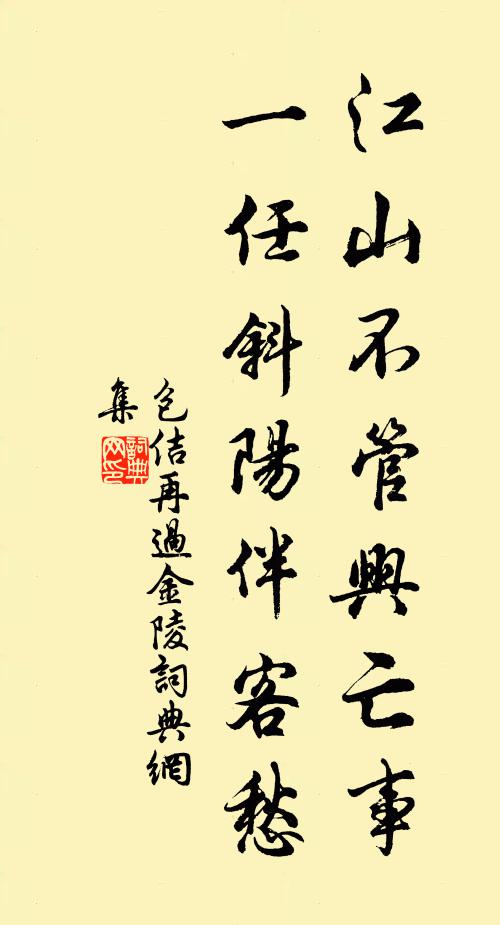 江山不管興亡事
一任斜陽伴客愁
包佶再過金陵詞典網
集
詞典
网印